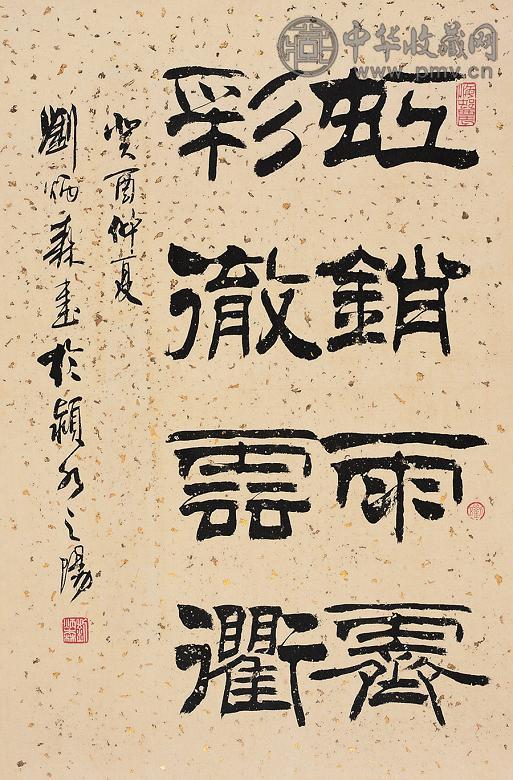 中华收藏网
www.pmv.cn
虹銷雨霽
彩徹雲衢
癸酉仲夏
劉炳森書於潁水之陽